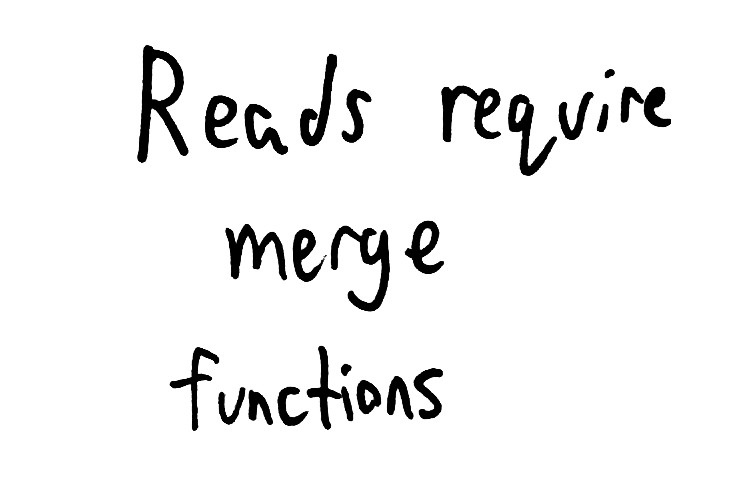 Reads require
merge
functions